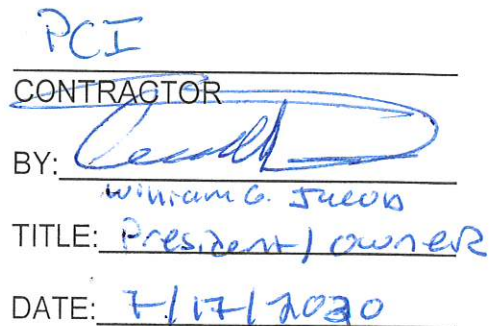 PCI
CONTRACTOR
BY:
William G. Jacobs
TITLE: President / owner
DATE: 7/17/2020